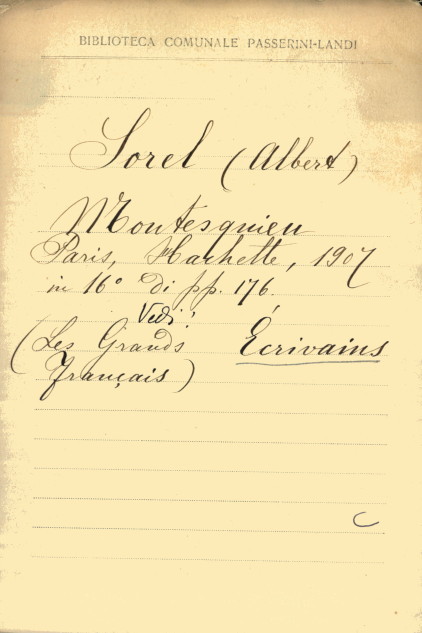 BIBLIOTECA COMUNALE PASSERINI-LANDI
Sorel (Albert)
Montesquieu
Paris, Hachette, 1907
in 16° di pp. 176.
Vedi:
(Les Grands Écrivains
français)
C